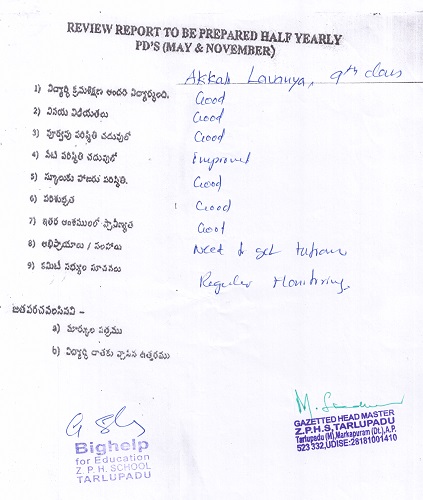 REVIEW REPORT TO BE PREPARED HALF YEARLY
PD'S (MAY & NOVEMBER)
Akkali Lavanya, 9th class
1) విద్యార్థి క్రమశిక్షణ అందరి విద్యార్థులందు. Good
2) వినయ విధేయతలు Good
3) పూర్వపు పరిస్థితి చదువులో Good
4) నేటి పరిస్థితి చదువులో Improved
5) స్కూలుకు హాజరు పరిస్థితి. Good
6) పరిశుభ్రత Good
7) ఇతర అంశములలో ప్రావీణ్యత Good
8) అభిప్రాయాలు / సలహాలు Need to get tutions
9) కమిటీ సభ్యుల సూచనలు Regular Monitoring.
జతపరచవలసినవి –
a) మార్కుల పత్రము
b) విద్యార్థి దాతకు వ్రాసిన ఉత్తరము
Bighelp
for Education
Z. P. H. SCHOOL
TARLUPADU
GAZETTED HEAD MASTER
Z.P.H.S, TARLUPADU
Tarlupadu (M), Markapuram (Dt.), A.P.
523 332, UDISE:28181001410